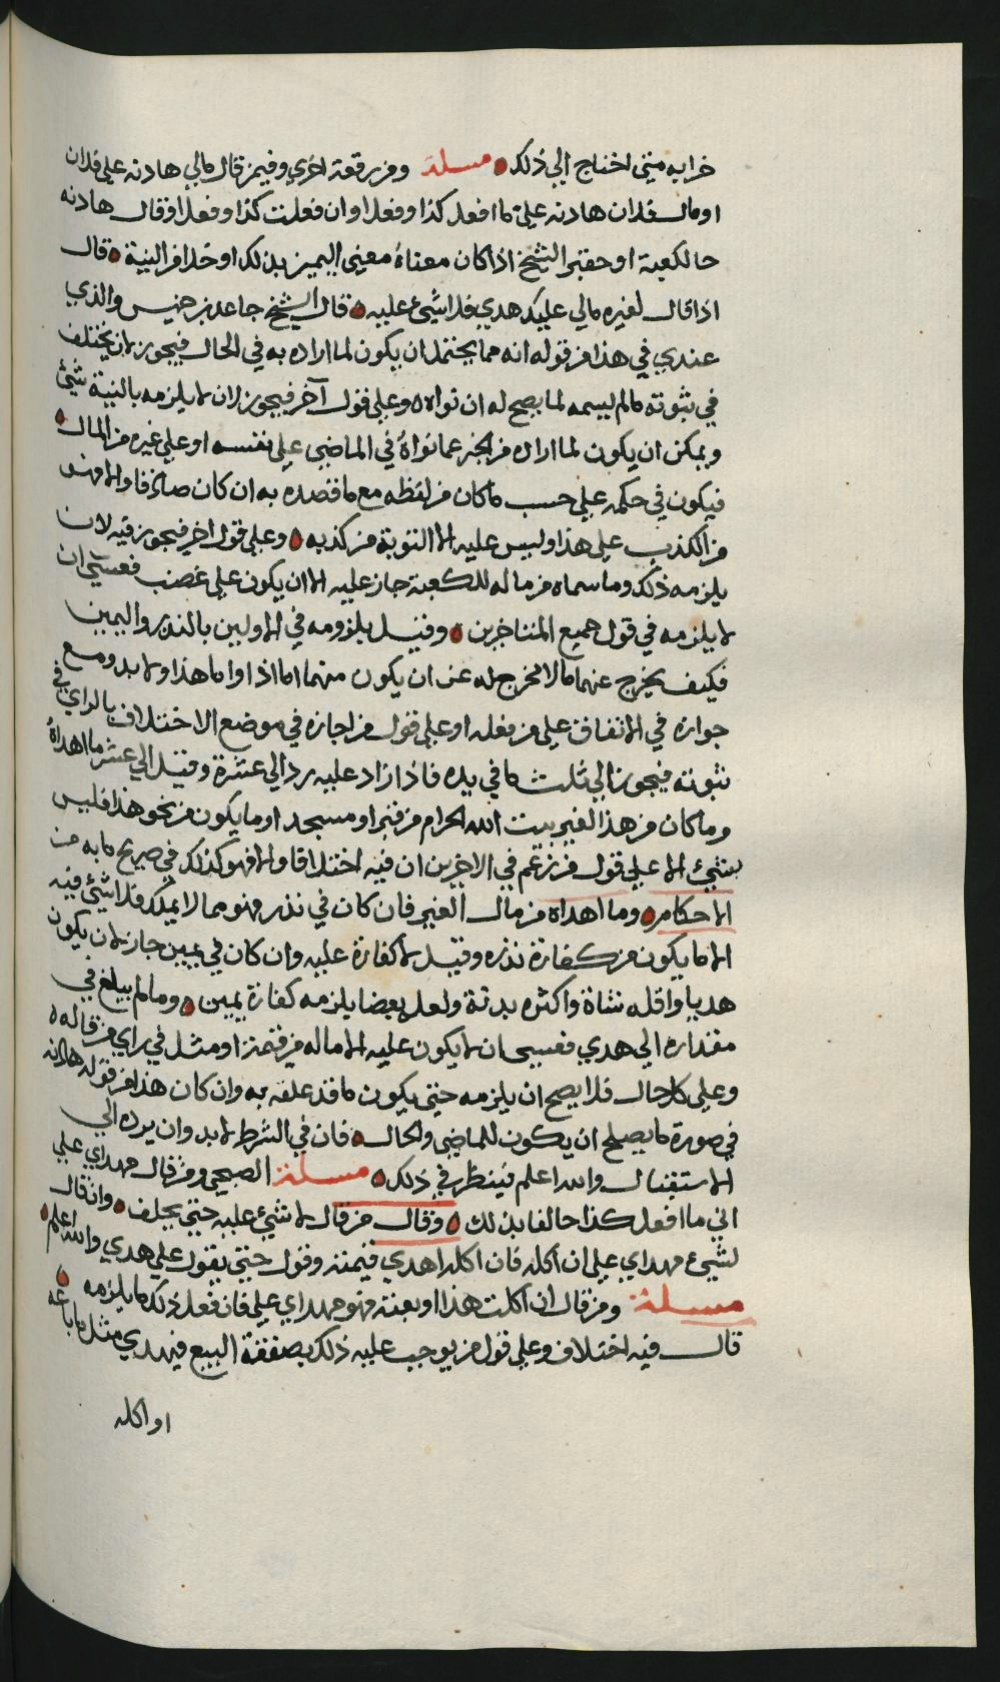 خرابه متى احتاج الى ذلك مسلة ومن رقعة اخرى وفيمن قال مالي هادنه على فلان
او مال فلان هادنه على ما افعل كذا وفعل او ان فعلت كذا وفعل او قال هادنه
حالكعبة او حقبر الشيخ اذا كان معناه معنى اليمين بذلك او خلا من النية قال
اذا قال لغيره مالي عليك هدي فلا شيء عليه قال الشيخ جاعد بن خميس والذي
عندي في هذا من قوله انه مما يحتمل ان يكون لما اراده به في الحال فيجوز لان يختلف
في ثبوته مالم يسمه لما يصح له ان نواه وعلى قول آخر فيجوز لان لا يلزمه بالنية شيء
ويمكن ان يكون لما اراد من الخبر عما نواه في الماضي على نفسه او على غيره من المال
فيكون في حكمه على حسب ما كان من لفظه مع ما قصده به ان كان صادقا والا فهو
من الكذب على هذا وليس عليه الا التوبة من كذبه وعلى قول اخر فيجوز فيه لان
يلزمه ذلك وما سماه من ماله للكعبة جاز عليه الا ان يكون على غضب فعسى ان
لا يلزمه في قول جميع المتاخرين وقيل بلزومه في الاولين بالنذر واليمين
فكيف يخرج عنهما مالا مخرج له عن ان يكون منهما اما اذا واما هذا ولا بد ومع
جوازه في الاتفاق على من فعله او على قول من اجازه في موضع الاختلاف بالراي في
ثبوته فيجوز الى ثلث ما في يده فاذا زاد عليه رد الى عشرة وقيل الى عشر ما اهداه
وما كان من هذا لغير بيت الله الحرام من قبر او مسجد او ما يكون من نحو هذا فليس
بشيء الا على قول من زعم في الاخرين ان فيه اختلافا والا فهو كذلك في صريح ما به من
الاحكام وما اهداه من مال الغير فان كان في نذر فهو مما لا يملك فلا شيء فيه
الا ما يكون من كفارة نذره وقيل لا كفارة عليه وان كان في يمين جاز لان يكون
هديا واقله شاة واكثره بدنة ولعل بعضا يلزمه كفارة يمين ومالم يبلغ في
مقداره الى هدي فعسى ان لا يكون عليه الا ماله من قيمة او مثل في راي من قاله
وعلى كل حال فلا يصح ان يلزمه حتى يكون ما قد علقه به وان كان هذا من قوله هادنه
في صورة ما يصلح ان يكون للماضي والحال فان في الشرط لا بد وان يرده الى
الاستقبال والله اعلم فينظر في ذلك مسلة الصبحي ومن قال مهداي على
اني ما افعل كذا حالفا بذلك وقال من قال لا شيء عليه حتى يحلف وان قال
لشيء مهداي على ان اكله فان اكله اهدى قيمته وقول حتى يقول على هدي والله اعلم
مسلة ومن قال ان اكلت هذا او بعته فهو مهداي على فان فعل ذلك ما يلزمه
قال فيه اختلاف وعلى قول من يوجب عليه ذلك بصفقة البيع فيهدي مثل ما باعه
او اكله